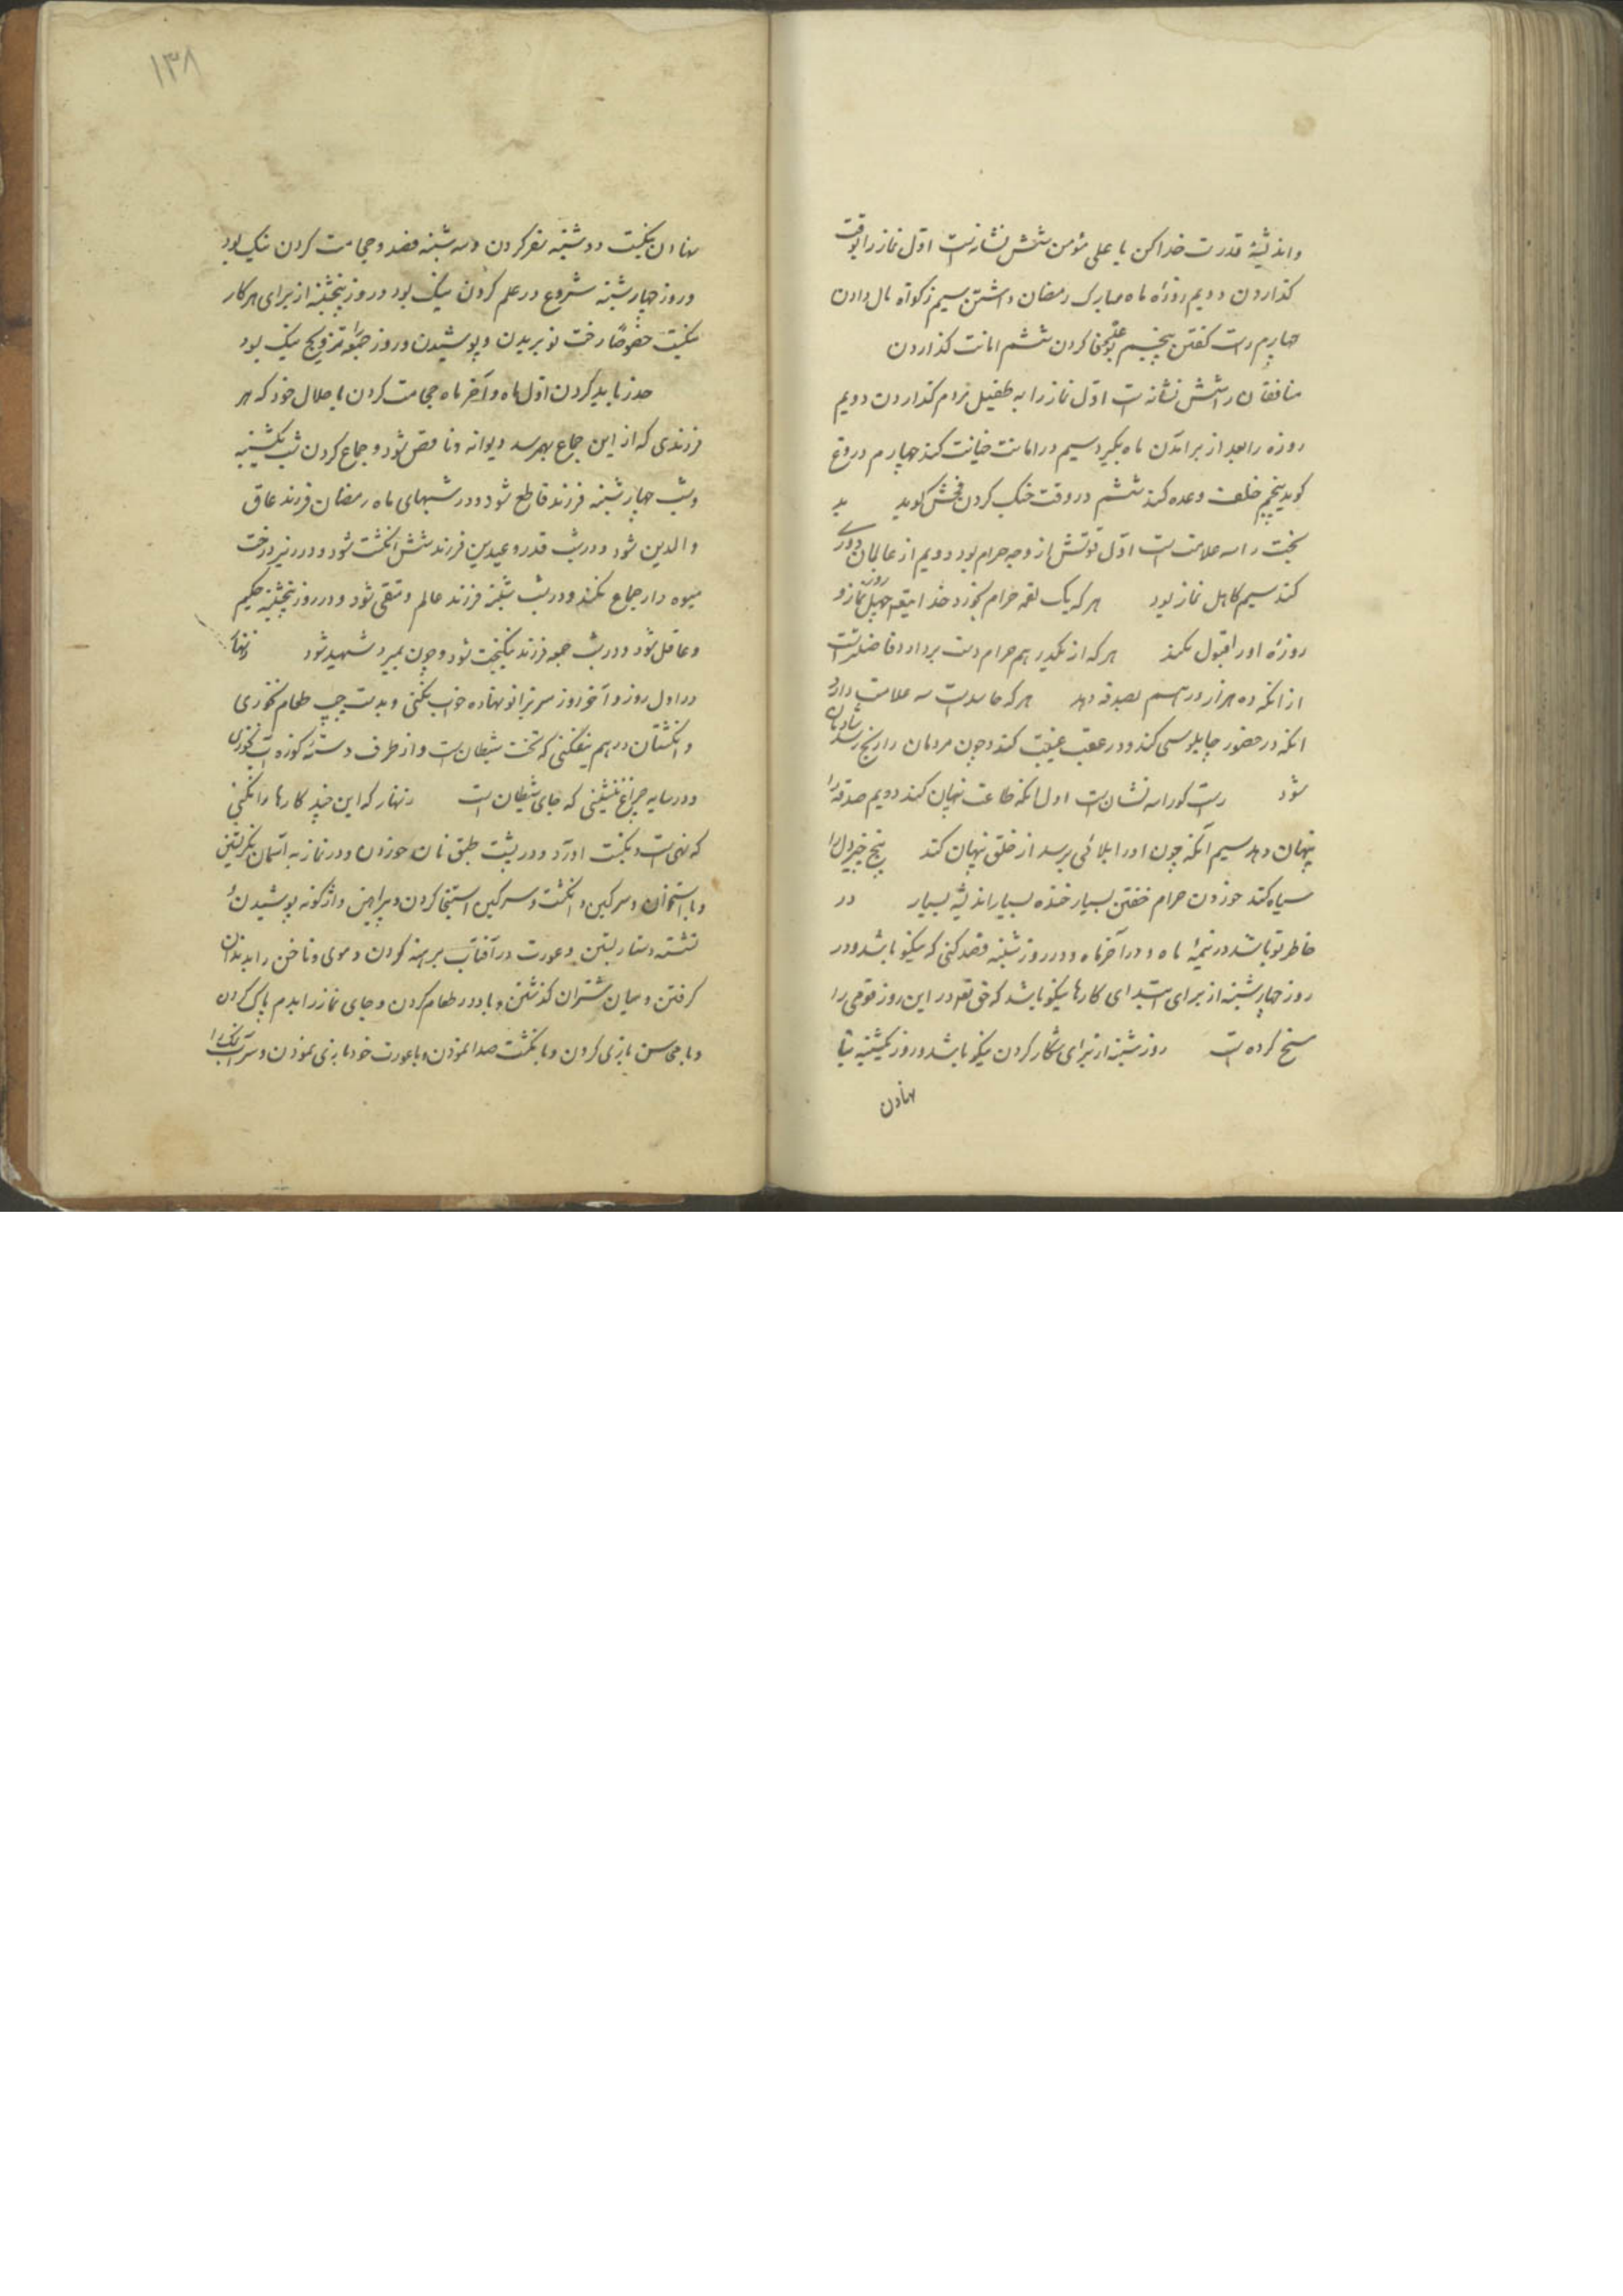 واندیشهٔ قدرت خدا کن یا علی مؤمن را شش نشانست اوّل نماز را بوقت
گذاردن دویم روزهٔ ماه مبارک رمضان داشتن سیم زکوة مال دادن
چهارم راست گفتن پنجم بوعده وفا کردن ششم امانت گذاردن
منافقان را شش نشانه است اوّل نماز را به طفیل مردم گذاردن دویم
روزه را بعد از برآمدن ماه بگیرد سیم در امانت خیانت کند چهارم دروغ
گوید پنجم خلف وعده کند ششم در وقت جنگ کردن فحش گوید بد
بخت را سه علامت است اوّل قوتش از وجه حرام بود دویم از عالمان دوری
کند سیم کاهل نماز بود هر که یک لقمه حرام بخورد خدایتعالی چهل روز نماز و
روزهٔ او را قبول نکند هر که از یکدرهم حرام دست بردارد فاضلتر است
از آنکه ده هزار درهم بصدقه دهد هر که حاسد است سه علامت دارد
آنکه در حضور چاپلوسی کند و در عقب غیبت کند و چون مردمان را رنج رسد شادمان
شود راست گو را سه نشان است اول آنکه طاعت نهان کند دویم صدقه را
پنهان دهد سیم آنکه چون او را بلائی برسد از خلق نهان کند پنج چیز دل را
سیاه کند خوردن حرام خفتن بسیار خنده بسیار اندیشه بسیار در
خاطر تو باشد در نیمهٔ ماه و در آخر ماه و در روز شنبه قصد کنی که نیکو باشد و در
روز چهارشنبه از برای ابتدای کارها نیکو باشد که حق تعالی در این روز قومی را
مسخ کرده است روز شنبه از برای شکار کردن نیکو باشد و روز یکشنبه بنا
نهادن
۱۳۸
نهادن نیکست دوشنبه سفر کردن و سه شنبه فصد و حجامت کردن نیک بود
و روز چهارشنبه شروع در علم کردن نیک بود و روز پنجشنبه از برای هر کار
نیکست خصوصاً رخت نو بریدن و پوشیدن و روز جمعه تزویج نیک بود
حذر باید کردن اوّل ماه و آخر ماه مجامعت کردن با حلال خود که هر
فرزندی که از این جماع بهم رسد دیوانه و ناقص شود و جماع کردن شب یکشنبه
و شب چهارشنبه فرزند قاطع شود و در شبهای ماه رمضان فرزند عاق
والدین شود و در شب قدر و عیدین فرزند شش انگشت شود و در زیر درخت
میوه دار جماع نکند و در شب شنبه فرزند عالم و متقی شود و در روز پنجشنبه حکیم
و عاقل شود و در شب جمعه فرزند نیکبخت شود و چون بمیرد شهید شود زنهار
در اول روز و آخر روز سر بزانو نهاده خواب نکنی و بدست چپ طعام نخوری
و انگشتان در هم نیفکنی که تخت شیطان است و از طرف دستهٔ کوزه آب نخوری
و در سایه چراغ ننشینی که جای شیطان است زنهار که این چند کارها را نکنی
که نهی است و نکبت آورد و در پشت طبق نان خوردن و در نماز به آسمان نگریستن
و با استخوان و سرگین و انگشت و سرگین استنجا کردن و پیراهن واژگونه پوشیدن و
نشسته دستار بستن و عورت در آفتاب برهنه کردن و موی و ناخن را بدندان
گرفتن و میان شتران گذشتن و باد در طعام کردن و جای نماز را بدم پاک کردن
و با محاسن بازی کردن و با انگشت صدا نمودن و با عورت خود بازی نمودن و سر آب تنگ را